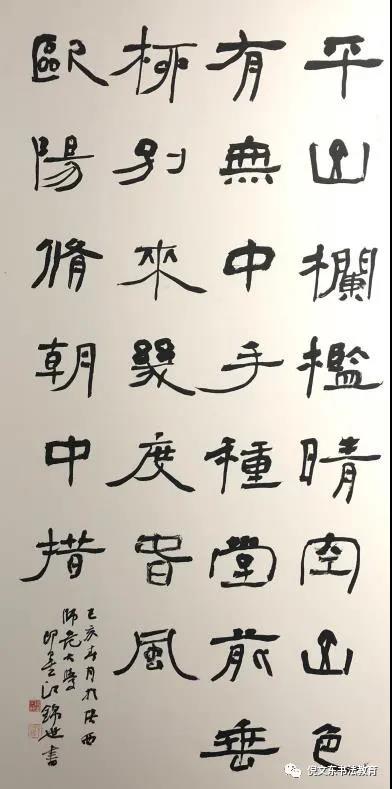 平山欄檻晴空山色
有無中手種堂前垂
柳别來幾度春風
歐陽脩朝中措
己亥春月於陕西
师范大學
即墨江錦世書
倪文东书法教育